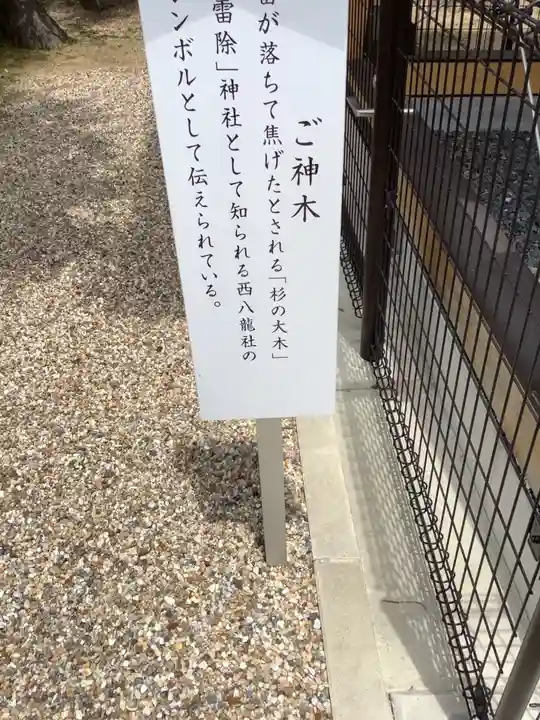 ご神木
雷が落ちて焦げたとされる「杉の大木」
雷除」神社として知られる西八龍社の
ンボルとして伝えられている。